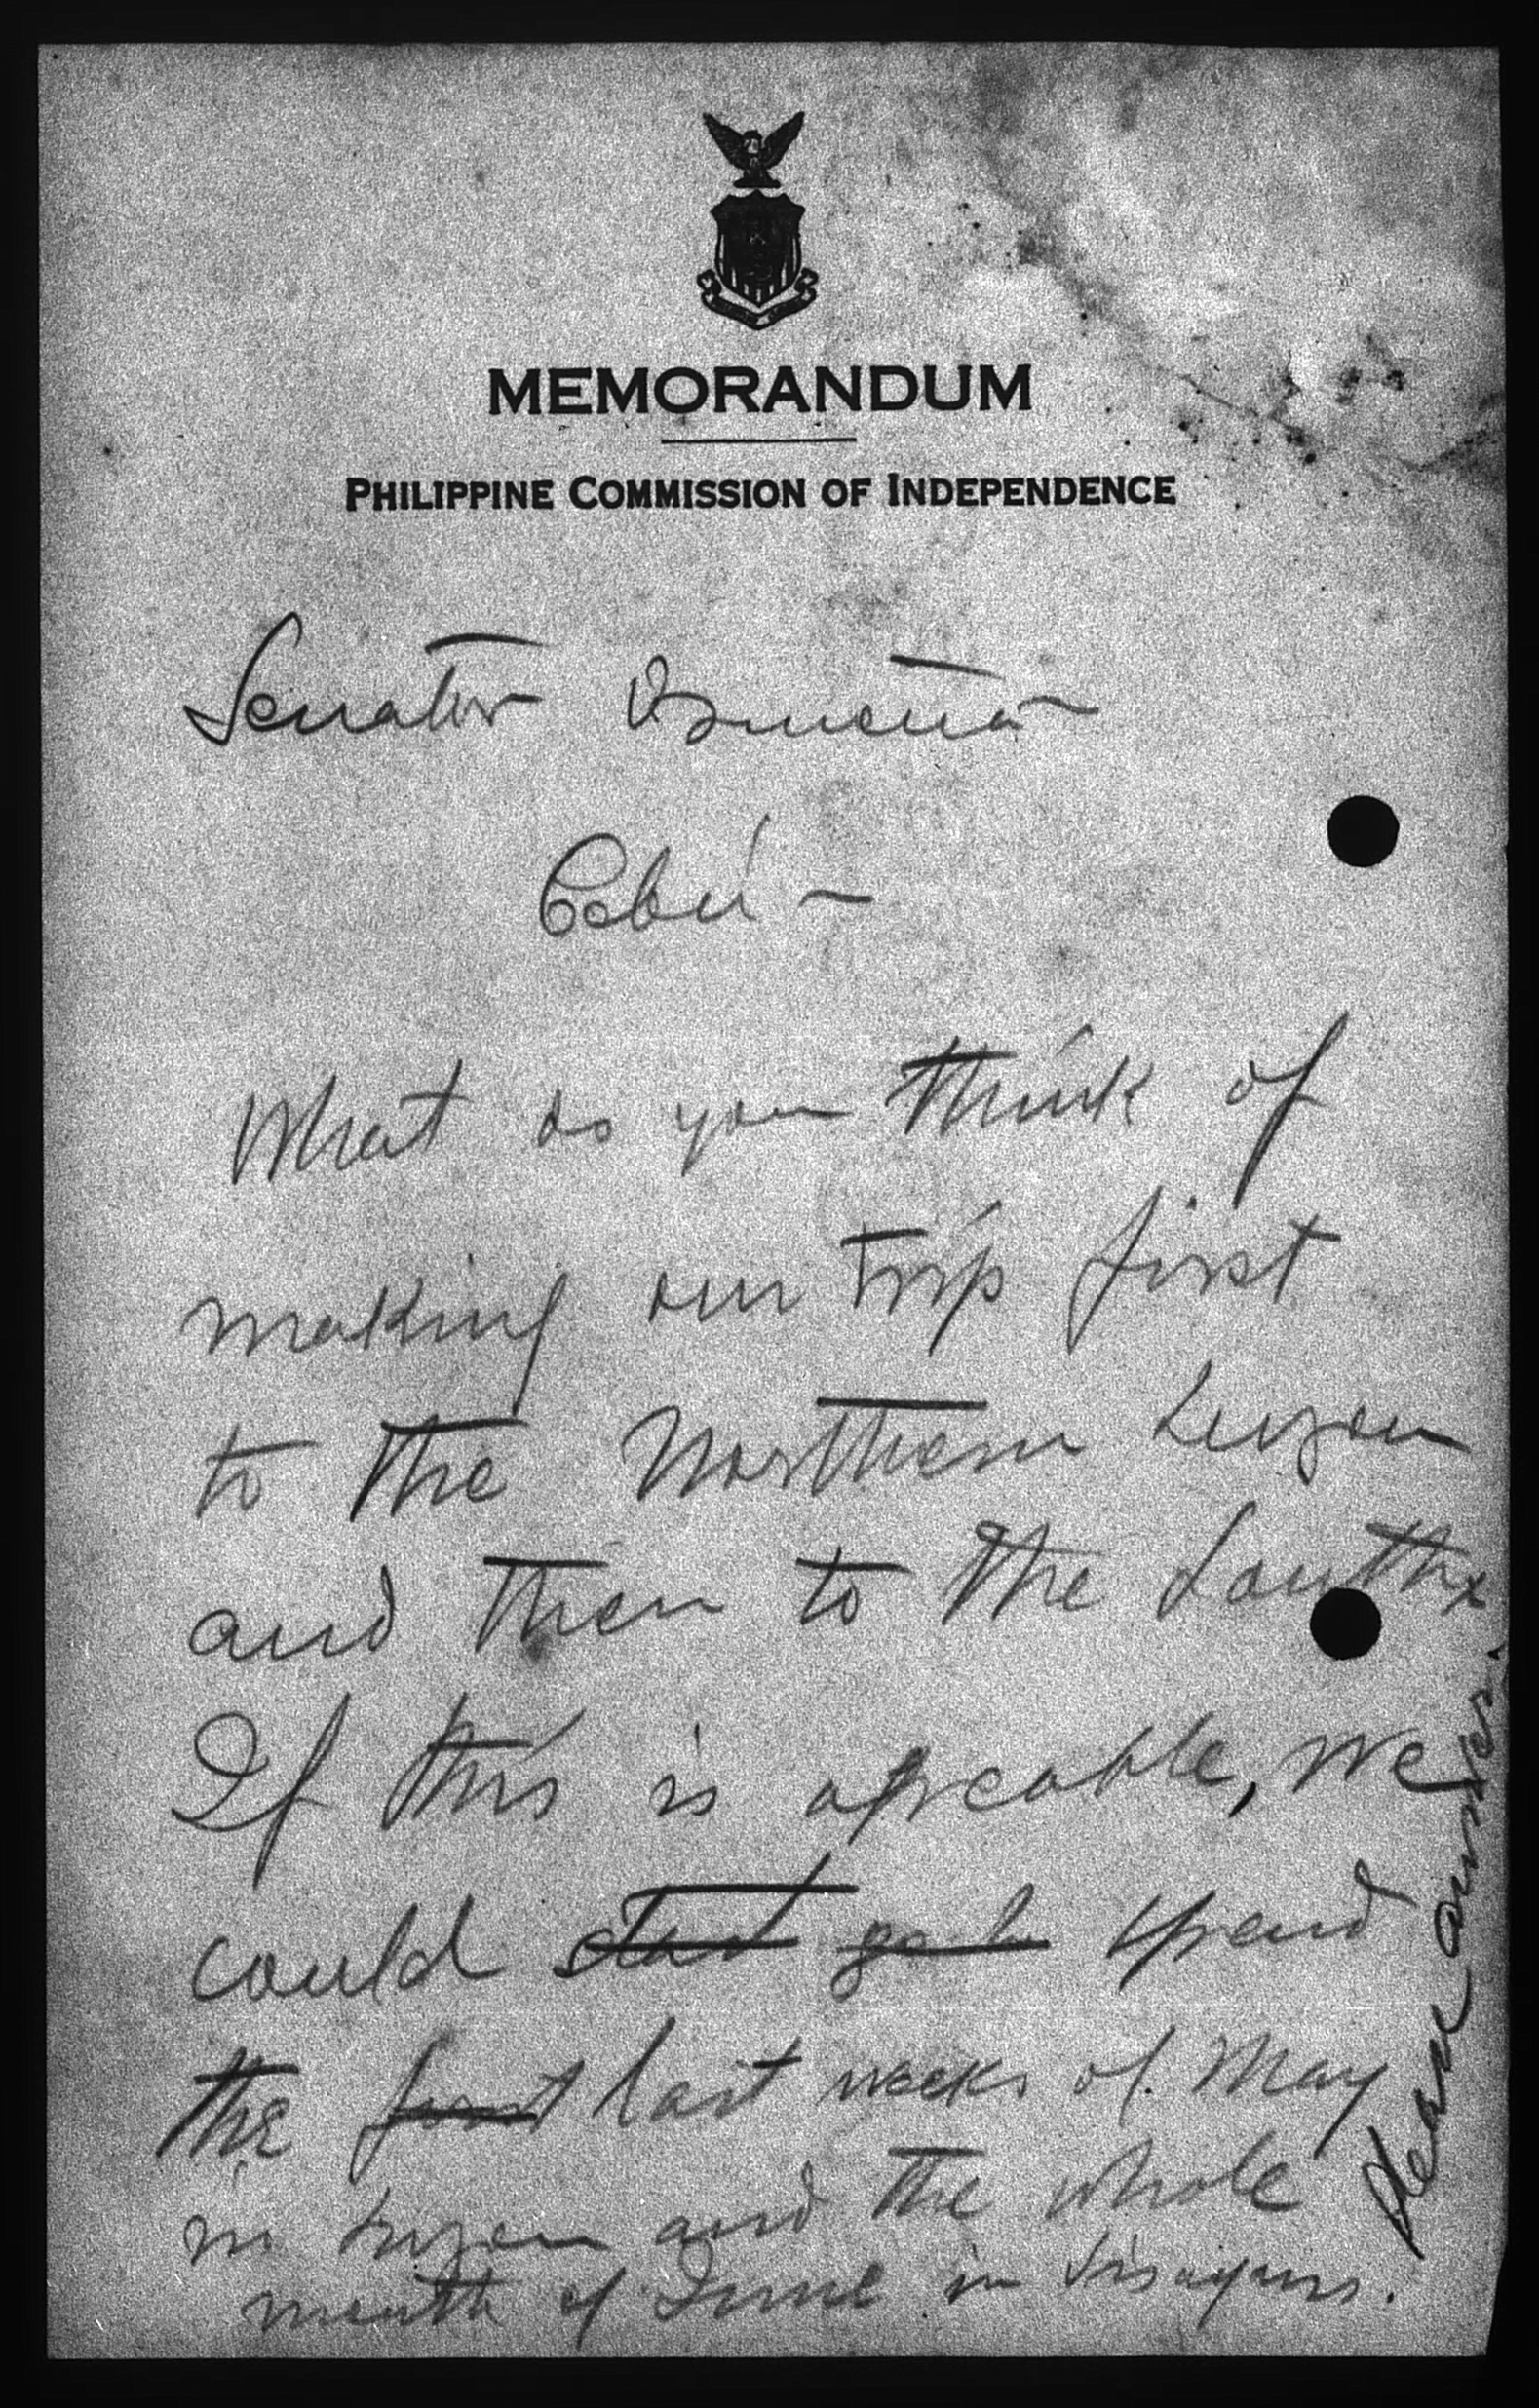 MEMORANDUM
PHILIPPINE COMMISSION OF INDEPENDENCE
Senator Osmeña
Cebú –
What do you think of
making our trip first
to the Northern Luzon
and then to the South
If this is agreable, we
could start go to spend
the first last weeks of May
in Luzon and the whole
month of June in Visayas.
Please answer.